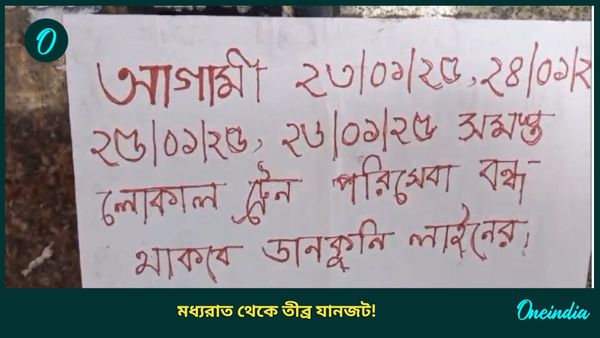 O
আগামী ২৩/০১/২৫, ২৪/০১/২
২৫/০১/২৫, ২৬/০১/২৫ সমস্ত
লোকাল ট্রেন পরিসেবা বন্ধ
থাকবে ডানকুনি লাইনের।
মধ্যরাত থেকে তীব্র যানজট!
Oneindia